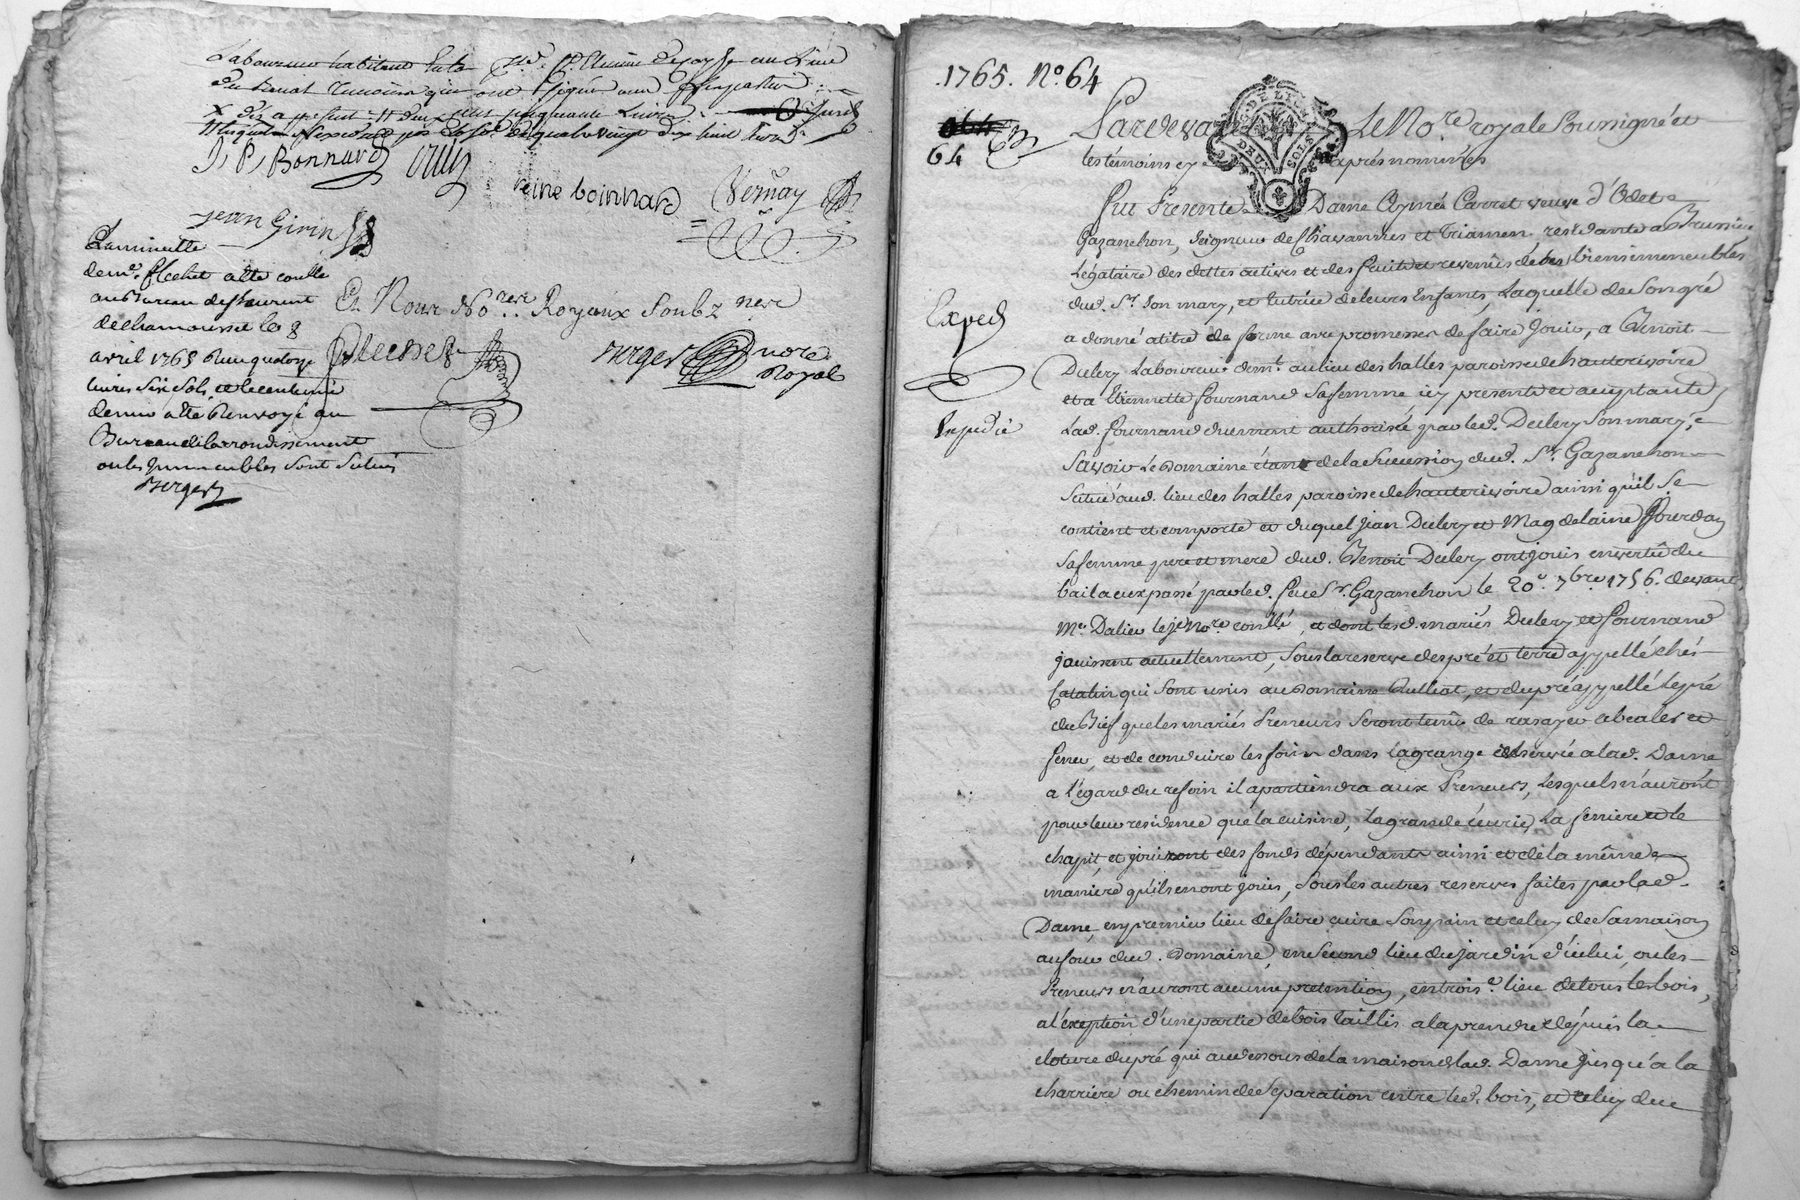 Laboureur habitant
du Benat temoins qui ont signé avec
X dix a present
J P Bonnard
reine boinnard
Vernay
jean Girin
La minutte
de me. flechet a été conllé
au Bureau de St laurent
de chamousset le 8
avril 1765 Reçu quatorze
livres six sols, et le centieme
denier a été Renvoyé au
Bureau de larrondissement
ou les Immeubles sont situés
Berger
Et Nous No.res Royaux Soubz nes
flechet
Berger nore
Royal
1765. No. 64
64
Exped
Expedié
DE LYON
DEUX SOLS
Pardevant Le No.re royale soussigné et
les témoins cy aprés nommées
fut Presente Dame Aymée Carret veuve d'Odet
Gazanchon, seigneur de Chavannes et Triamen residante a Brussieu
Légataire des dettes actives et des fruits et revenûs de ses biens immeubles
dud. Sr. son mary, et tutrice de leurs Enfants, Laquelle de son gré
a donné a titre de ferme avec promesse de faire jouir, a Benoit
Dulery Laboureur demt. au lieu des halles paroisse de hauterivoire
et a Etiennette fournand sa femme icy presents et acceptants
Lad. fournand duement authorisée par led. Dulery son mary,
Savoir Le Domaine étant de la succession dud. Sr. Gazanchon
situé aud. lieu des halles paroisse de hauterivoire ainsi qu'il se
contient et comporte et duquel jean Dulery et Magdelaine Jourdan
sa femme pere et mere dud. Benoit Dulery ont jouis en vertû du
bail a eux passé par led. feu Sr. Gazanchon le 20e. 7bre 1756. devant
Me. Dalieu le jе Nore conllé, et dont lesd. mariés Dulery et fournand
jouissent actuellement, sous la reserve des pré et terre appellé chés
Catalin qui sont unis au Domaine Aulliat, et du pré appellé Le pré
du Bief que les mariés Preneurs seront tenûs de rasayer abealer et
fener, et de conduire les foins dans La grange reservée a lad. Dame
a l'égard du refoin il apartiendra aux Preneurs, Lesquels n'auront
pour leur residence que la cuisine, La grande écurie, La feniere et le
chapit, et jouiront des fonds dépendants ainsi et de la même
maniere qu'ils en ont jouis, sous les autres reserves faites par lad.
Dame, en premier lieu de faire cuire son pain et celuy de sa maison
au four dud. Domaine, en second lieu du jardin d'icelui, ou les
Preneurs n'auront aucune pretention, en trois.e lieu de tous les bois,
a l'éxeption d'une partie de bois taillis a la prendre depuis la
cloture du pré qui au dessous de la maison de lad. Dame jusqu'a la
charriere ou chemin de separation entre led. bois, et celuy du